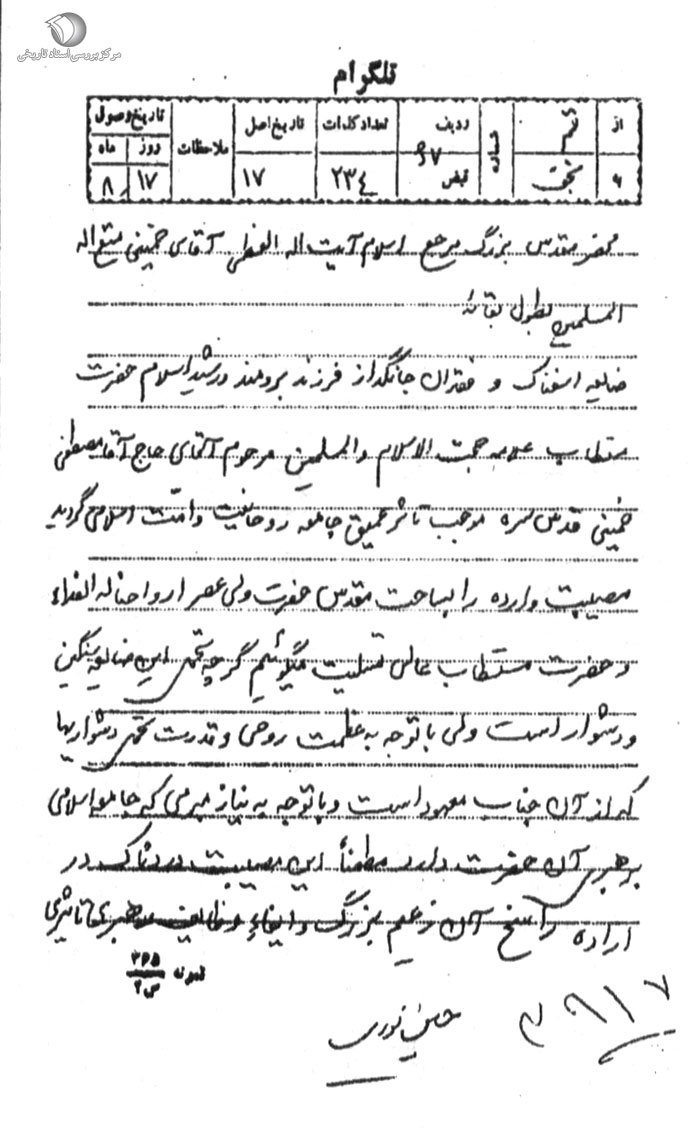 مرکز بررسی اسناد تاریخی
تلگرام
از قم شماره ردیف تعداد کلمات تاریخ اصل ملاحظات تاریخ وصول
روز ماه
به نجف قبض ۹۷ ۲۳۴ ۱۷ ۱۷ ۸
محضر مقدس بزرگ مرجع اسلام آیت اله العظمی آقای خمینی متع اله
المسلمین بطول بقائه
ضایعه اسفناک و فقدان جانگداز فرزند برومند و رشید اسلام حضرت
مستطاب علامه حجت الاسلام والمسلمین مرحوم آقای حاج آقا مصطفی
خمینی قدس سره موجب تاثر عمیق جامعه روحانیت و امت اسلامی گردید
مصیبت وارده را بساحت مقدس حضرت ولی عصر ارواحنا له الفداء
و حضرت مستطاب عالی تسلیت میگوئیم گرچه تحمل این ضایعه سنگین
و دشوار است ولی با توجه به عظمت روحی و قدرت تحمل دشواریها
که از آن جناب معهود است و با توجه به نیاز مبرمی که جامعه اسلامی
برهبری آن حضرت دارد مطمئناً این مصیبت دردناک در
اراده راسخ آن زعیم بزرگ و ایفاء وظایف رهبری تاثیری
نمونه ۲۶۵
س ۲
حسین نوری